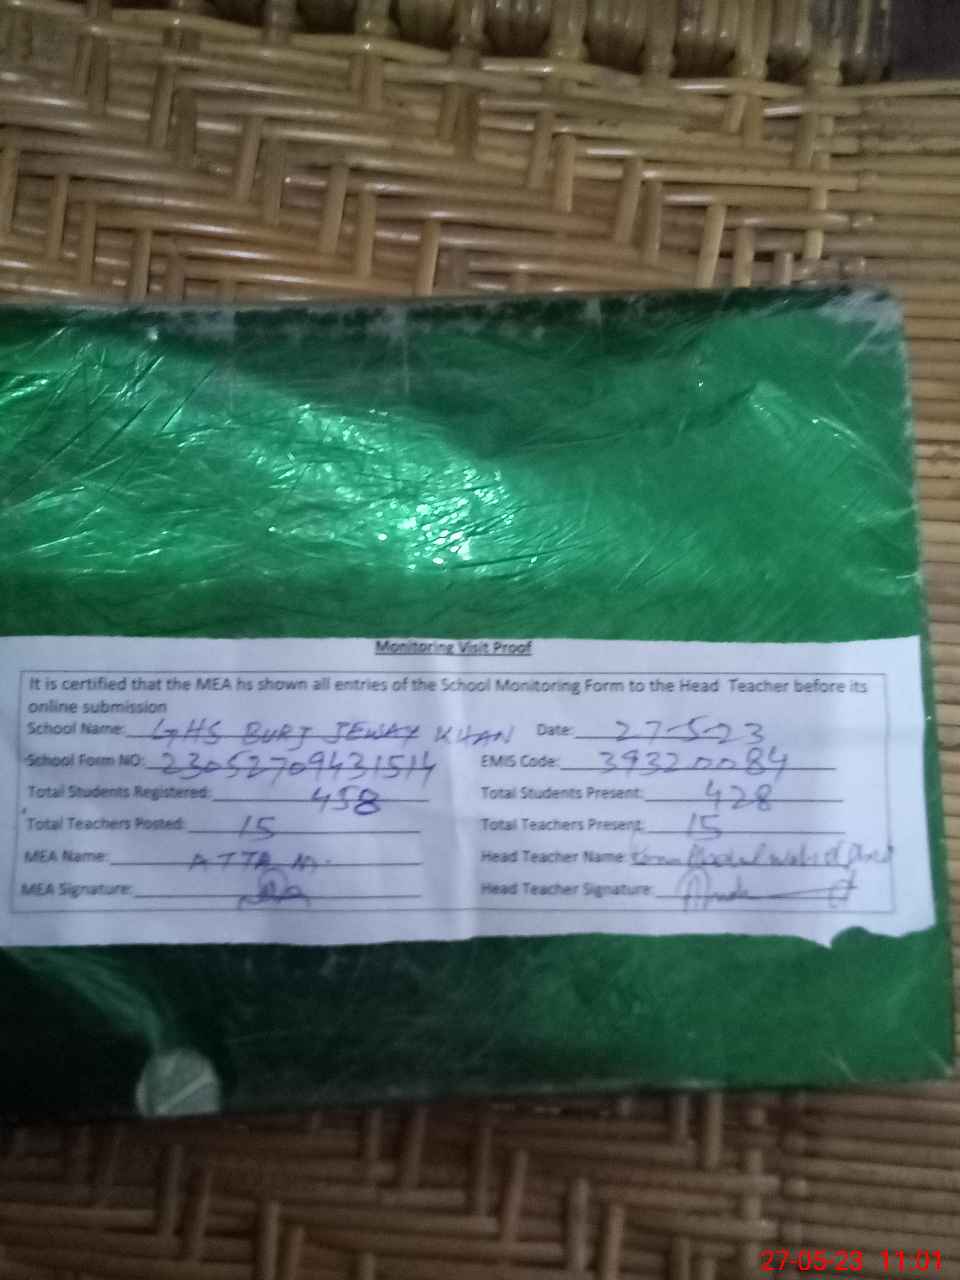 Monitoring Visit Proof
It is certified that the MEA hs shown all entries of the School Monitoring Form to the Head Teacher before its
online submission
School Name: GHS BURJ JEWAY KHAN Date: 27-5-23
School Form NO: 23052709431514 EMIS Code: 39320084
Total Students Registered: 458 Total Students Present: 428
Total Teachers Posted: 15 Total Teachers Present: 15
MEA Name: ATTA M. Head Teacher Name:
MEA Signature: Head Teacher Signature:
27-05-23 11:01